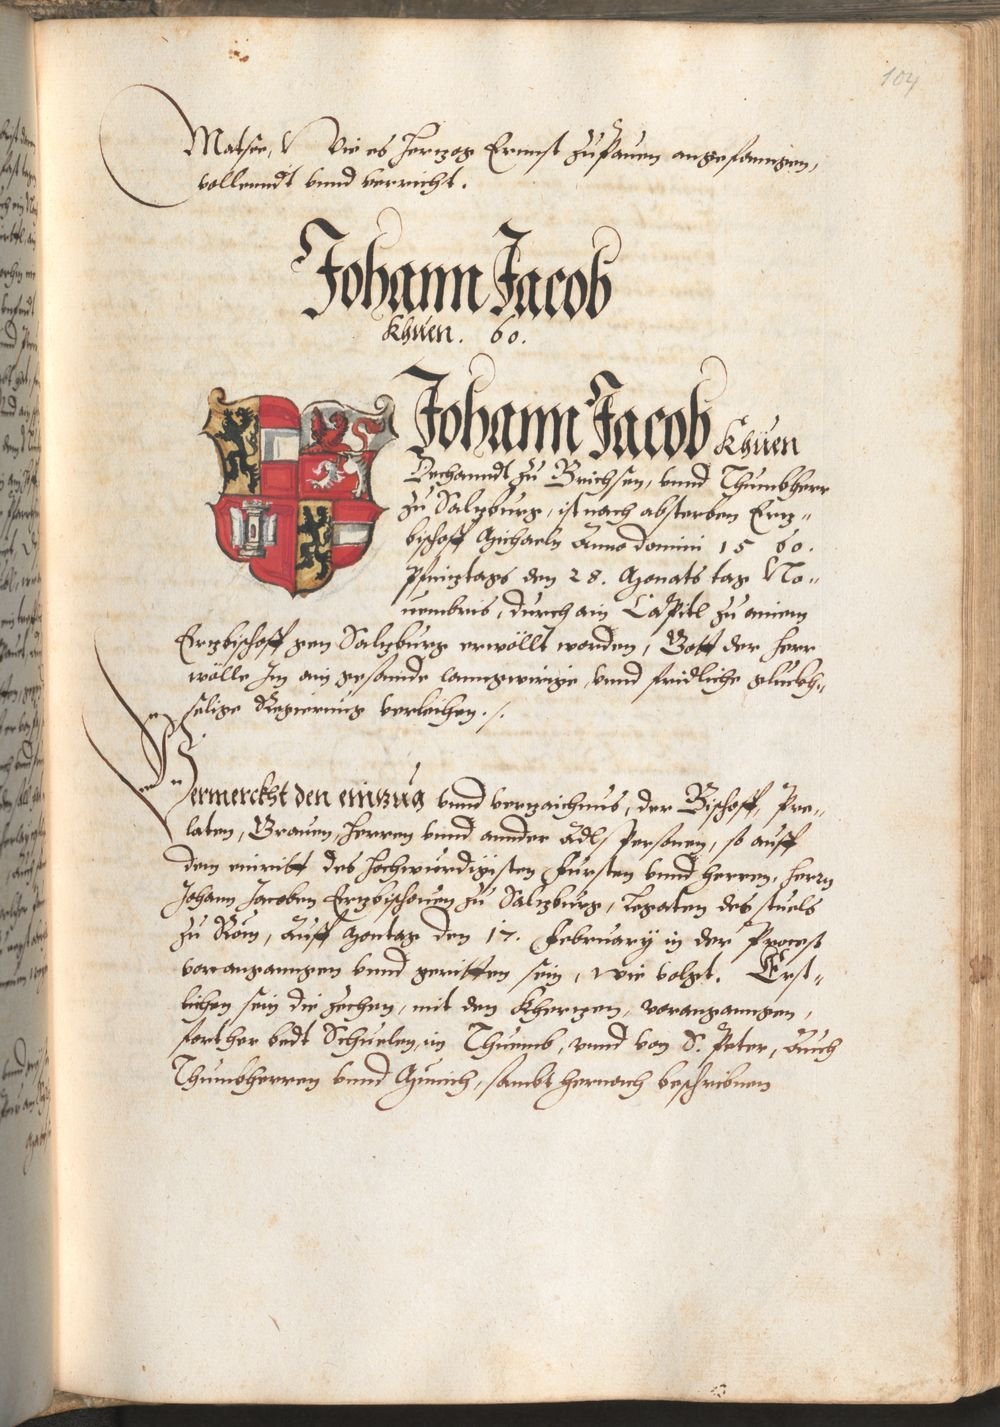 104
Matsee, Wie es Herzog Ernnst zu Pauen angefanngen,
vollenndt vnnd verricht.
Johann Jacob
Khüen. 60.
Johann Jacob Khüen
Dechanndt zu Brichsen, vnnd Thumbherr
zu Salzburg, ist nach absterben Erz-
bischoff Michaeln Anno domini 1560.
Pfinztags den 28. Monats tag No-
uembris, durch ain Capitl zu ainem
Erzbischoff gen Salzburg erwöllt worden, Gott der Herr
wölle Im ain gesannde lanngwirige, vnnd fridliche glückh-
selige Regierung verleihen ./.
Vermerckht den einzug vnnd verzaichnus, der Bischoff, Pre-
laten, Grauen, Herren vnnd annder Adls Personen, so auff
dem einritt des Hochwürdigisten Fürsten vnnd Herren, Herrn
Johann Jacoben Erzbischouen zu Salzburg, Legaten des stuels
zu Rom, Auff Montag den 17. February in der Process
vorganngen vnnd geritten sein, wie volgt. Erst-
lichen sein die Zechen, mit den Kherzen, vorganngen,
forther bedt Schuelen, im Thuemb, vnnd von S. Peter, Auch
Thumbherren vnnd Münich, sambt hernach beschribnen